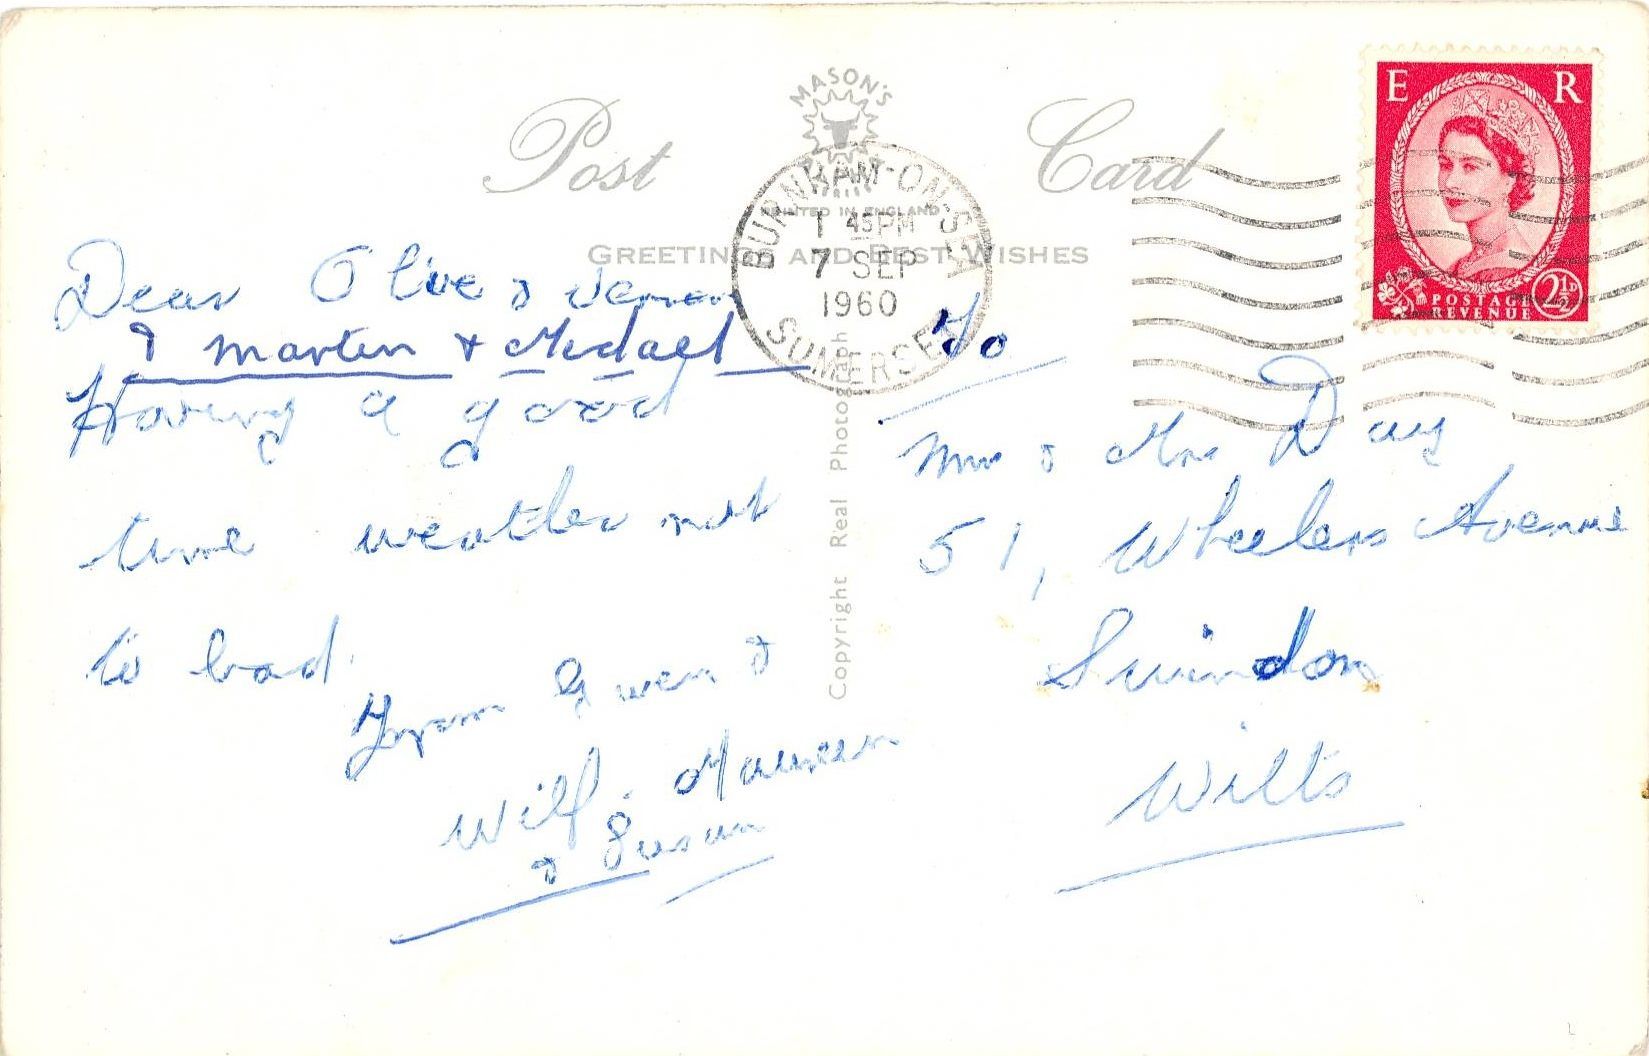 MASON'S
ALPHA
SERIES
Post Card
PRINTED IN ENGLAND
GREETINGS AND BEST WISHES
BURNHAM-ON-SEA
1 45 PM
7 SEP
1960
SOMERSET
E R
POSTAGE
REVENUE
2½D
Dear Olive &
& Martin + Michael
Having a good
time weather not
to bad.
From Gwen &
Wilf. Maureen
& Susan
Copyright Real Photograph
To
Mr & Mrs Day
51, Wheelers Avenue
Swindon
Wilts